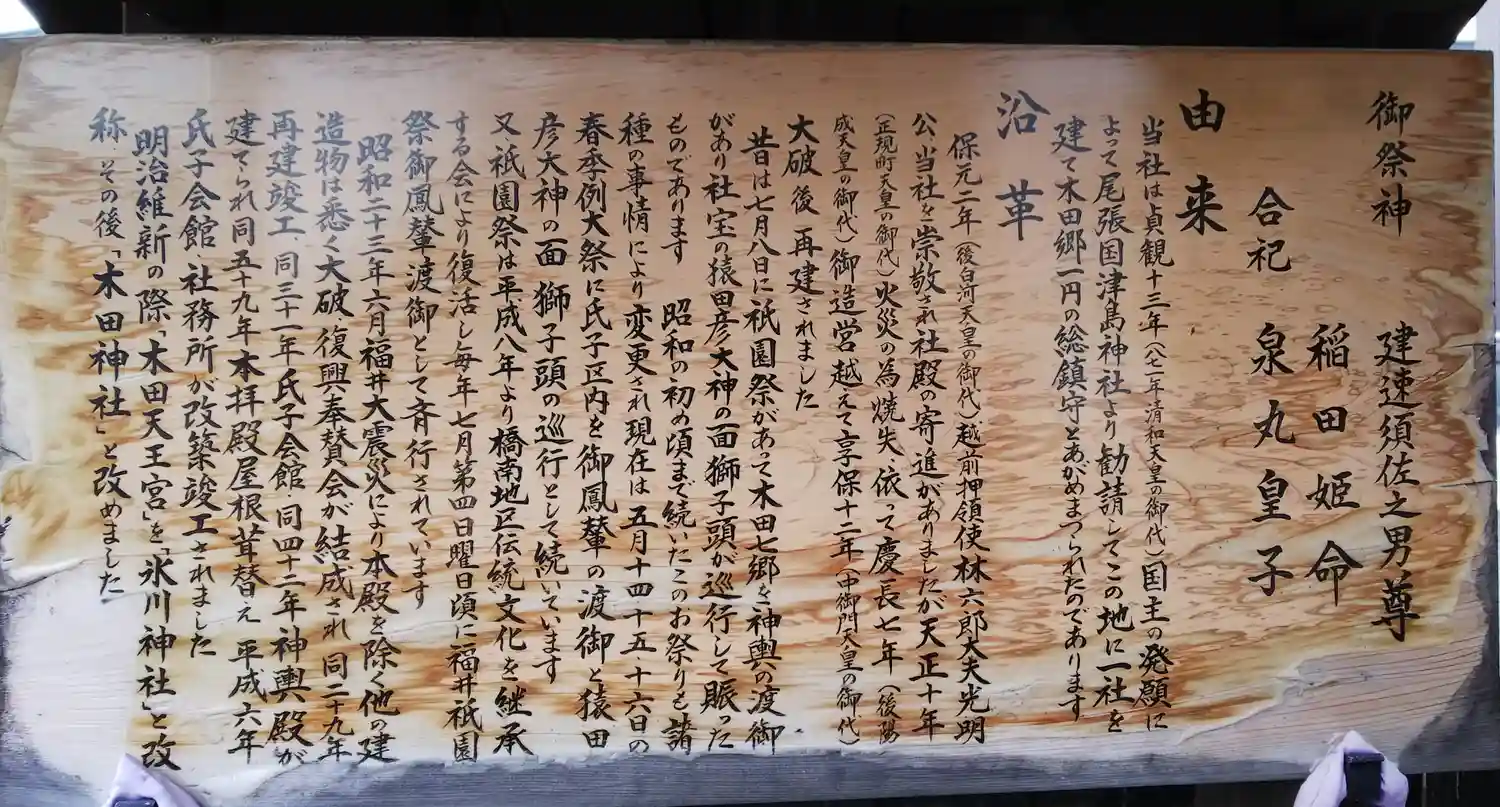 御祭神 建速須佐之男尊
稲田姫命
合祀 泉丸皇子
由来
当社は貞観十三年(八七一年清和天皇の御代)国主の発願に
よって尾張国津島神社より勧請してこの地に一社を
建て木田郷一円の総鎮守とあがめまつられたのであります
沿革
保元二年(後白河天皇の御代)越前押領使林六郎大夫光明
公、当社を崇敬され社殿の寄進がありましたが天正十年
(正親町天皇の御代)火災の為焼失、依って慶長七年(後陽
成天皇の御代)御造営越えて享保十二年(中御門天皇の御代)
大破後再建されました
昔は七月八日に祇園祭があって木田七郷を神輿の渡御
があり社宝の猿田彦大神の面獅子頭が巡行して賑った
ものであります 昭和の初め頃まで続いたこのお祭りも諸
種の事情により変更され現在は五月十四十五十六日の
春季例大祭に氏子区内を御鳳輦の渡御と猿田
彦大神の面獅子頭の巡行として続いています
又祇園祭は平成八年より橋南地区伝統文化を継承
する会により復活し毎年七月第四日曜日頃に福井祇園
祭御鳳輦渡御として斉行されています
昭和二十三年六月福井大震災により本殿を除く他の建
造物は悉く大破、復興奉賛会が結成され同二十九年
再建竣工、同三十一年氏子会館・同四十二年神輿殿が
建てられ同五十九年本拝殿屋根葺替え 平成六年
氏子会館、社務所が改築竣工されました
明治維新の際「木田天王宮」を「氷川神社」と改
称 その後「木田神社」と改めました